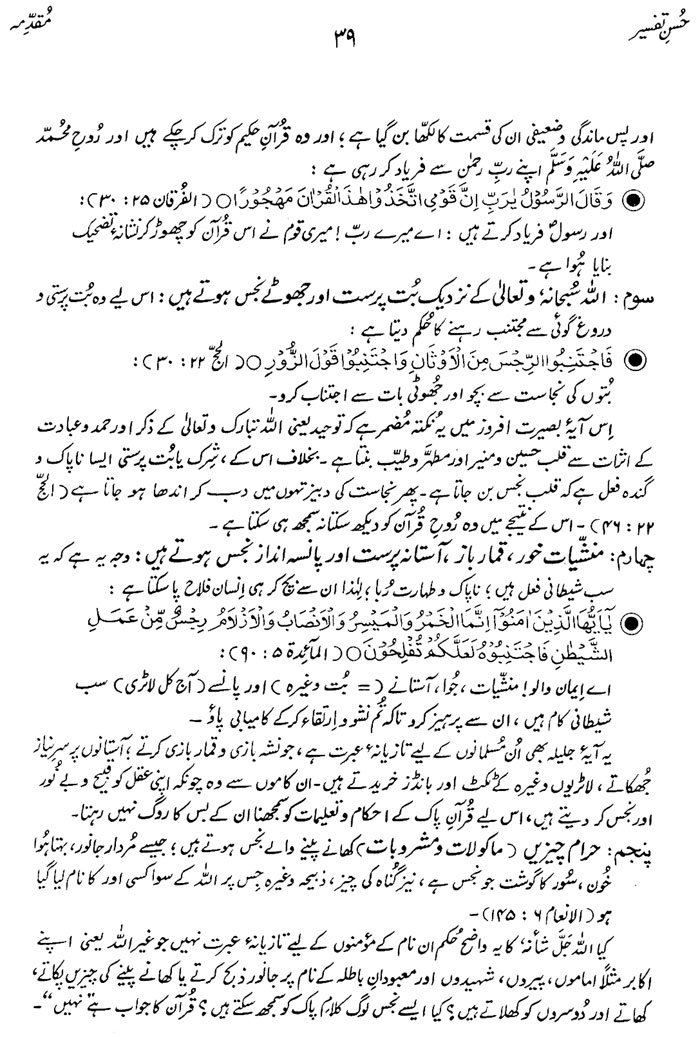 حُسنِ تفسیر
۳۹
مُقدّمِہ
اور پس ماندگی و ضعیفی ان کی قسمت کا لکھّا بن گیا ہے؛ اور وہ قُرآنِ حکیم کو ترک کر چکے ہیں اور رُوحِ محُمدؐ
صلّی اللہُ عَلَیْہِ وَسَلَّم اپنے ربِّ رحمٰن سے فریاد کر رہی ہے :
● وَقَالَ الرَّسُوْلُ یٰرَبِّ اِنَّ قَوْمِی اتَّخَذُوْا ھٰذَا الْقُرْاٰنَ مَھْجُوْرًا○ (الفُرقان ۲۵ : ۳۰):
اور رسولؐ فریاد کرتے ہیں : اے میرے ربّ! میری قوم نے اس قُرآن کو چھوڑ کر نشانۂ تضحیک
بنایا ہُوا ہے۔
سوم: اللہ سُبحانہٗ و تعالیٰ کے نزدیک بُت پرست اور جھوٹے نجس ہوتے ہیں : اس لیے وہ بُت پرستی و
دروغ گوئی سے مجتنب رہنے کا حُکم دیتا ہے :
● فَاجْتَنِبُوا الرِّجْسَ مِنَ الْاَوْثَانِ وَاجْتَنِبُوْا قَوْلَ الزُّوْرِ○ (الحجّ ۲۲ : ۳۰):
بُتوں کی نجاست سے بچو اور جھُوٹی بات سے اجتناب کرو۔
اِس آیۂ بصیرت افروز میں یہ نُکتہ مُضمر ہے کہ توحید یعنی اللہ تبارک و تعالیٰ کے ذکر اور حمد و عبادت
کے اثبات سے قلب حسین و منیر اور مطہّر و طیّب بنتا ہے۔ بخلاف اس کے، شِرک یا بُت پرستی ایسا ناپاک و
گندہ فعل ہے کہ قلب نجس بن جاتا ہے۔ پھر نجاست کی دبیز تہوں میں دب کر اندھا ہو جاتا ہے (الحجّ
۲۲ : ۴۶)۔ اس کے نتیجے میں وہ رُوحِ قُرآن کو دیکھ سکتا نہ سمجھ ہی سکتا ہے۔
چہارم: منشّیات خور، قمار باز، آستانہ پرست اور پانسہ انداز نجس ہوتے ہیں : وجہ یہ ہے کہ یہ
سب شیطانی فعل ہیں؛ ناپاک و طہارت رُبا؛ لہٰذا ان سے بچ کر ہی اِنسان فلاح پا سکتا ہے :
● یٰاَیُّھَا الَّذِیْنَ اٰمَنُوْا اِنَّمَا الْخَمْرُ وَالْمَیْسِرُ وَالْاَنْصَابُ وَالْاَزْلَامُ رِجْسٌ مِّنْ عَمَلِ
الشَّیْطٰنِ فَاجْتَنِبُوْہُ لَعَلَّکُمْ تُفْلِحُوْنَ○ (المآئدۃ ۵ : ۹۰):
اے اِیمان والو! منشّیات، جُوا، آستانے (= بُت وغیرہ) اور پانسے (آج کل لاٹری) سب
شیطانی کام ہیں، ان سے پرہیز کرو تاکہ تُم نشو و اِرتقاء کر کے کامیابی پاؤ۔
یہ آیۂ جلیلہ بھی اُن مُسلمانوں کے لیے تازیانۂ عبرت ہے، جو نشہ بازی و قمار بازی کرتے؛ آستانوں پر سرِ نیاز
جھُکاتے، لاٹریوں وغیرہ کے ٹکٹ اور بانڈز خریدتے ہیں۔ ان کاموں سے وہ چونکہ اپنی عقل کو قبیح و بے نُور
اور نجس کر دیتے ہیں، اس لیے قُرآنِ پاک کے احکام و تعلیمات کو سمجھنا ان کے بس کا روگ نہیں رہتا۔
پنجم: حرام چیزیں (ماکولات و مشروبات) کھانے پینے والے نجس ہوتے ہیں؛ جیسے مُردار جانور، بہتا ہُوا
خُون، سُور کا گوشت جو نجس ہے، نیز گُناہ کی چیز، ذبیحہ وغیرہ جِس پر اللہ کے سوا کسی اور کا نام لیا گیا
ہو (الانعام ۶ : ۱۴۵)۔
کیا اللہ جَلَّ شأنہٗ کا یہ واضح حُکم ان نام کے مؤمنوں کے لیے تازیانۂ عبرت نہیں جو غیرُ اللہ یعنی اپنے
اکابر مثلًا اماموں، پیروں، شہیدوں اور معبودانِ باطلہ کے نام پر جانور ذبح کرتے یا کھانے پینے کی چیزیں پکاتے،
کھاتے اور دُوسروں کو کھلاتے ہیں؟ کیا ایسے نجس لوگ کلامِ پاک کو سمجھ سکتے ہیں؟ قُرآن کا جواب ہے ”نہیں“۔